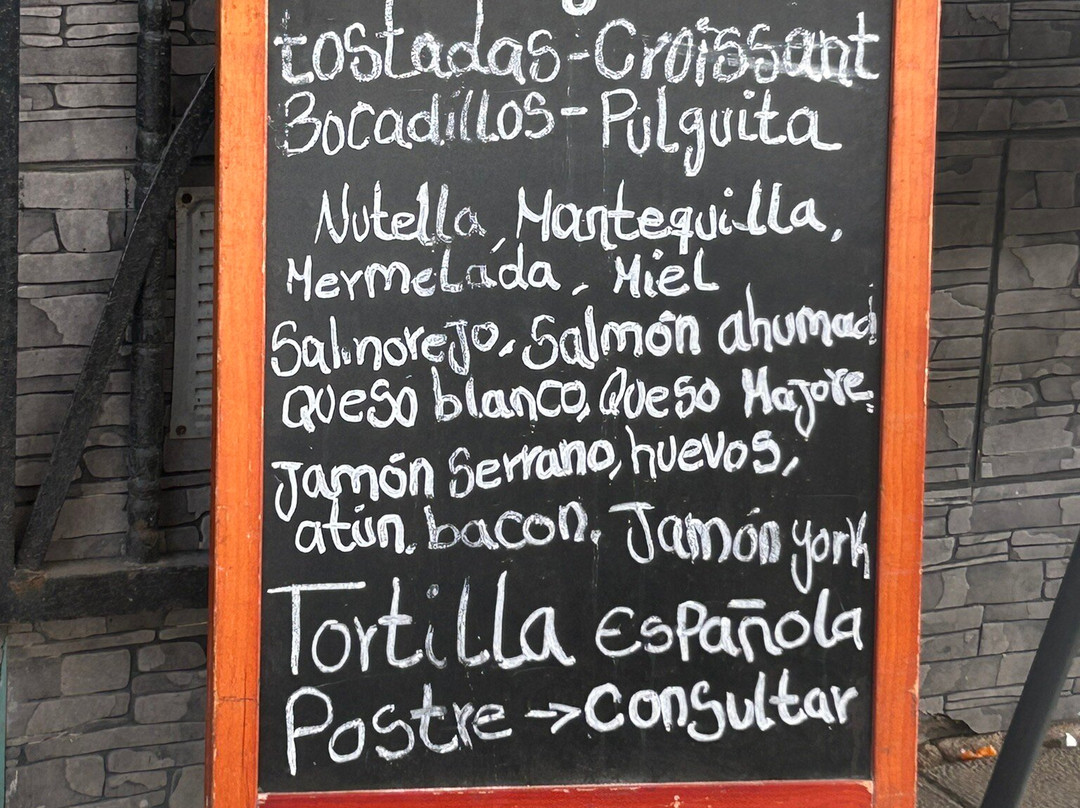 tostadas-Croissant
Bocadillos-Pulguita
Nutella, Mantequilla,
Mermelada, Miel
Salmorejo, Salmón ahumad
Queso blanco, Queso Majore
Jamón Serrano, huevos,
atún, bacon, Jamón york
Tortilla Española
Postre → Consultar